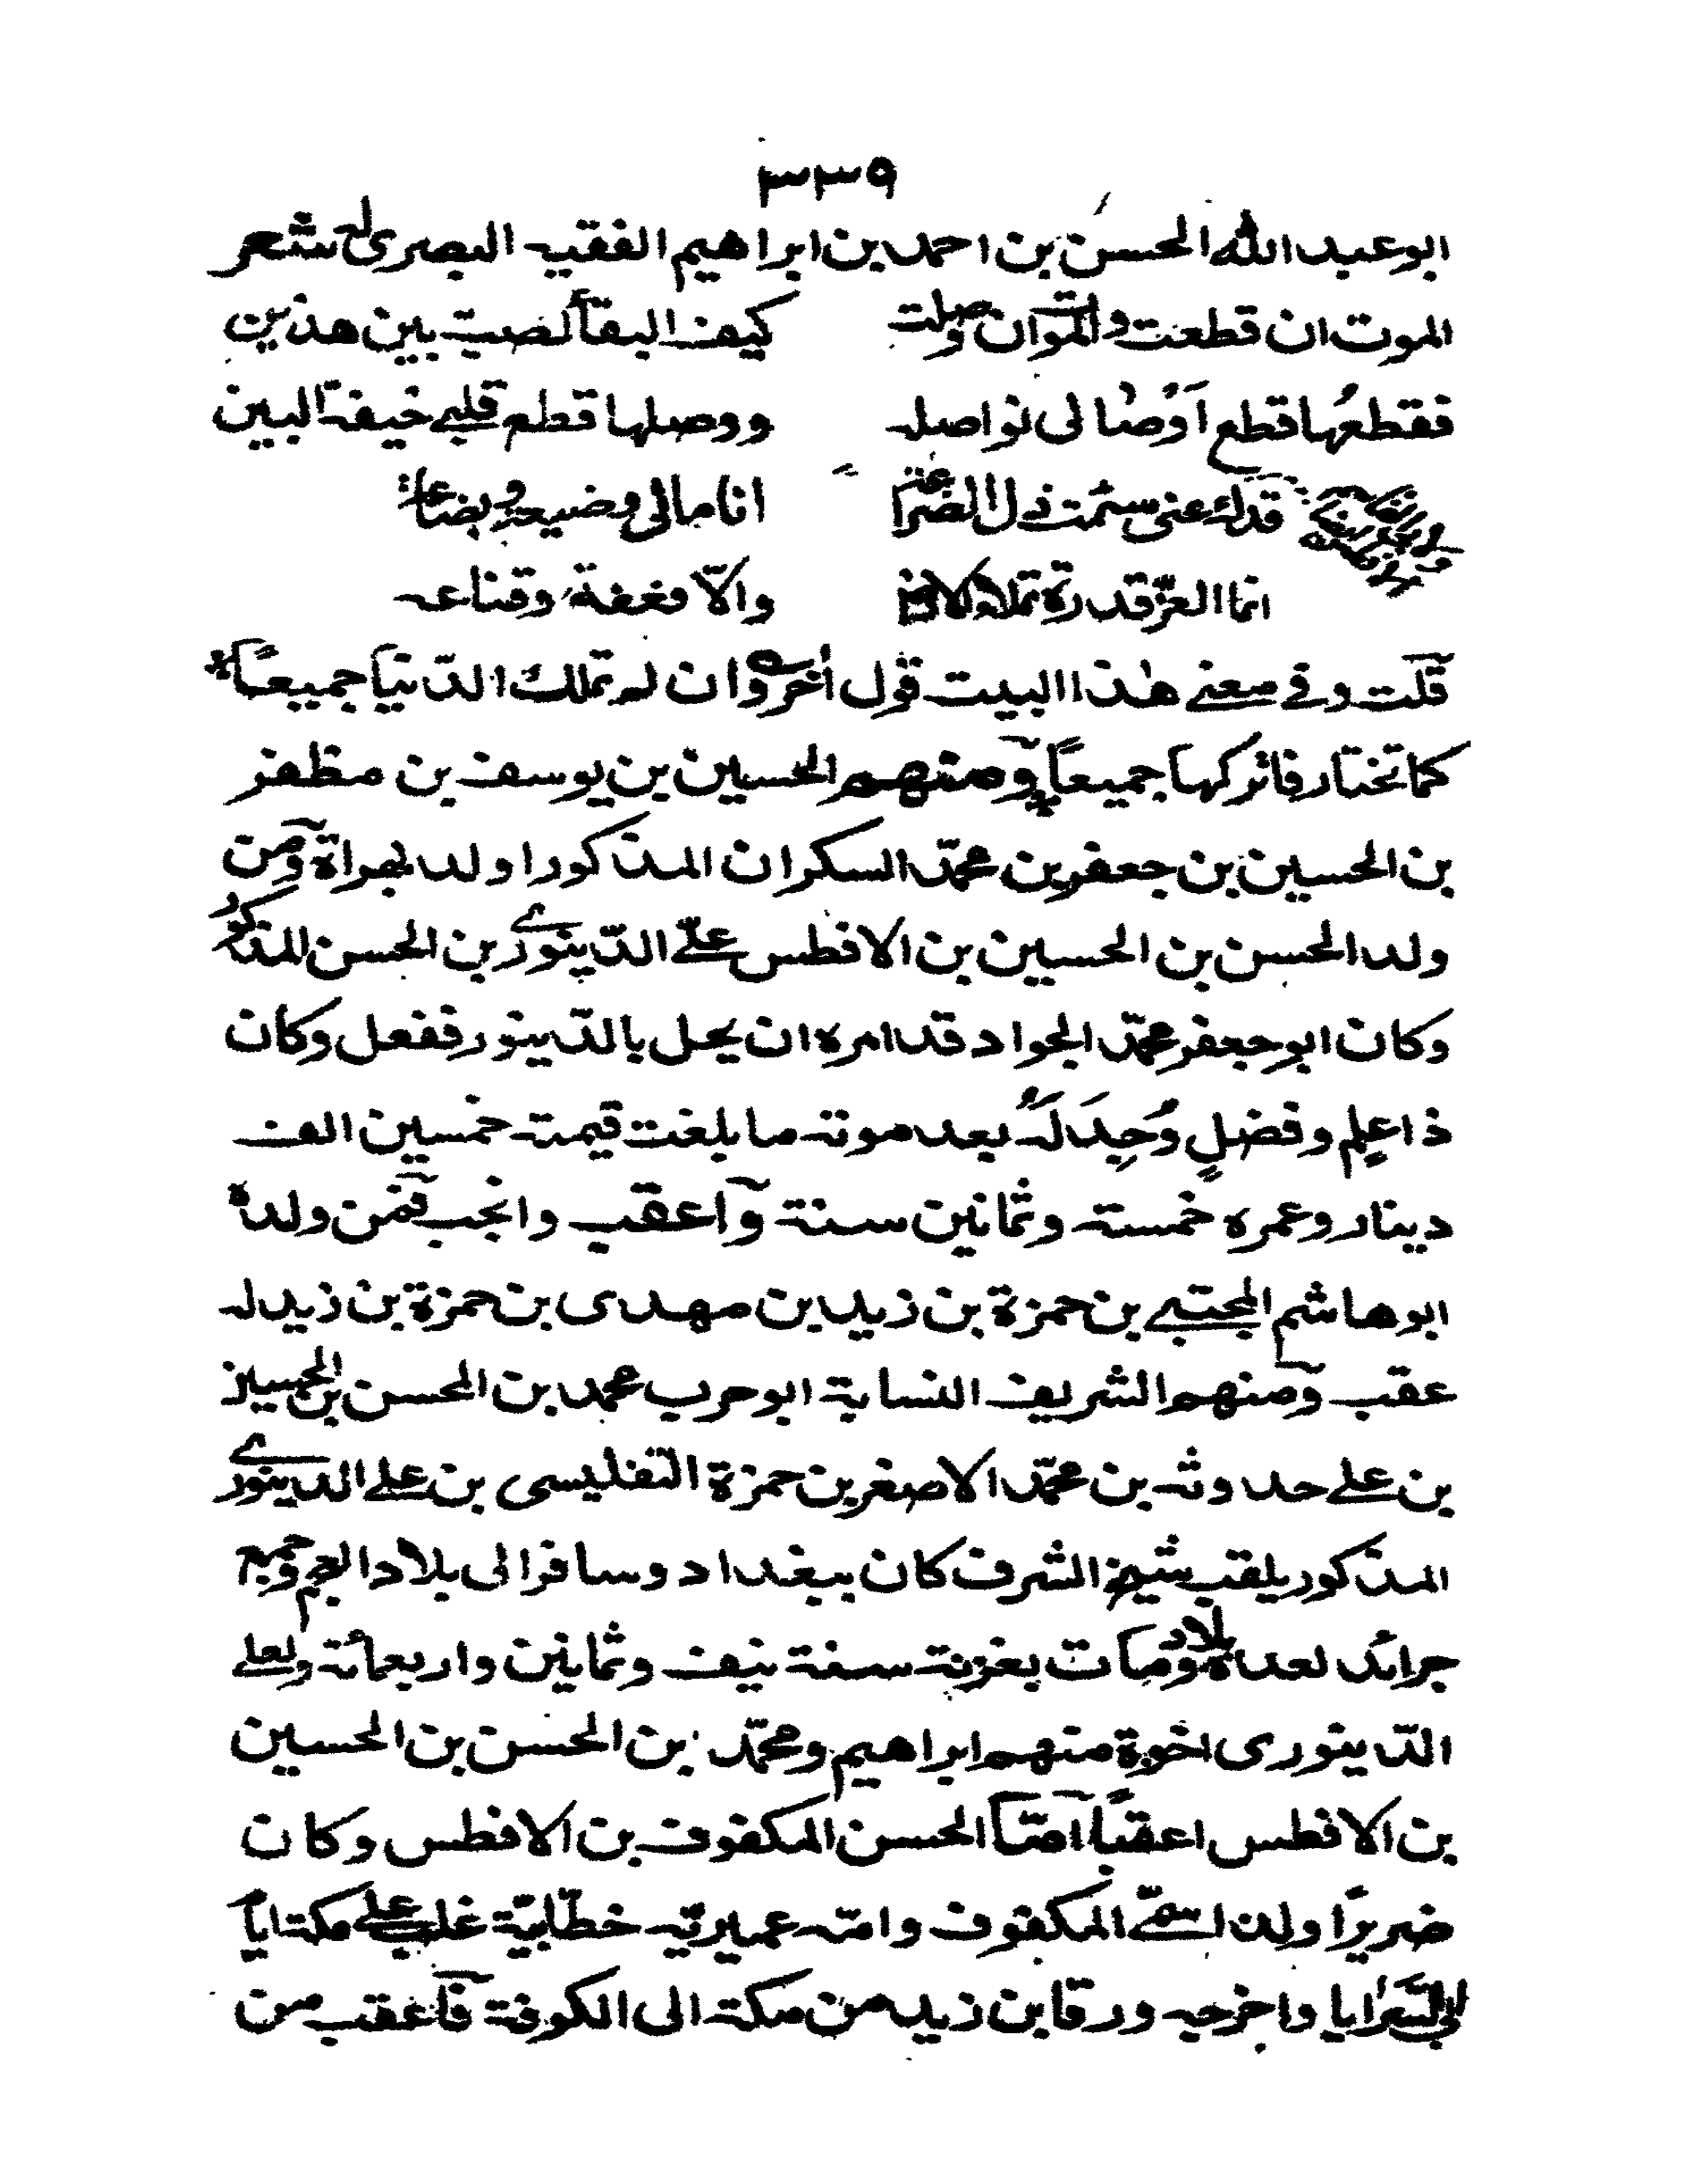 ٣٣٩
ابو عبد الله الحسن بن احمد بن ابراهيم الفقيه البصرى شعر
الموت ان قطعت والموت ان وصلت كيف البقا لصب بين هذين
فقطعها قطع اوصالى نواصله ووصلها قطع قلبى خيفة البين
قدك عنى سئمت ذل الضراعة انا مالى وضيعة وبضاعة
انما العز قدرة تملا الارض والا فعفة وقناعه
قلت وفى معنى هذا البيت قول اخر وان لم تملك الدنيا جميعا
كما تختار فاتركها جميعا ومنهم الحسين بن يوسف بن مظفر
بن الحسين بن جعفر بن محمد السكران المذكور اولد بهراة ومن
ولد الحسن بن الحسين بن الافطس على الدينورى بن الحسن المذكور
وكان ابو جعفر محمد الجواد قد امره ان يحل بالدينور ففعل وكان
ذا علم وفضل وُجِدَ لَهُ بعد موته ما بلغت قيمته خمسين الف
دينار وعمره خمسة وثمانين سنة واعقب وانجب فمن ولده
ابو هاشم المجتبى بن حمزة بن زيد بن مهدى بن حمزة بن زيد له
عقب ومنهم الشريف النسابة ابو حرب محمد بن المحسن بن الحسين
بن على حدوثه بن محمد الاصغر بن حمزة التفليسى بن على الدينورى
المذكور يلقب شيخ الشرف كان ببغداد وسافر الى بلاد العجم وجمع
جرائد لعدة بلاد ومات بغزنة سنة نيف وثمانين واربعمائة ولعلى
الدينورى اخوة منهم ابراهيم ومحمد بن الحسن بن الحسين
بن الافطس اعقبا امّا الحسن المكفوف بن الافطس وكان
ضريرا ولذا سمّى المكفوف وامّه عميريّه خطّابيّة غلب على مكة ايام
ابى السرايا واخرجه ورقا بن زيد من مكة الى الكوفة فاعقب من